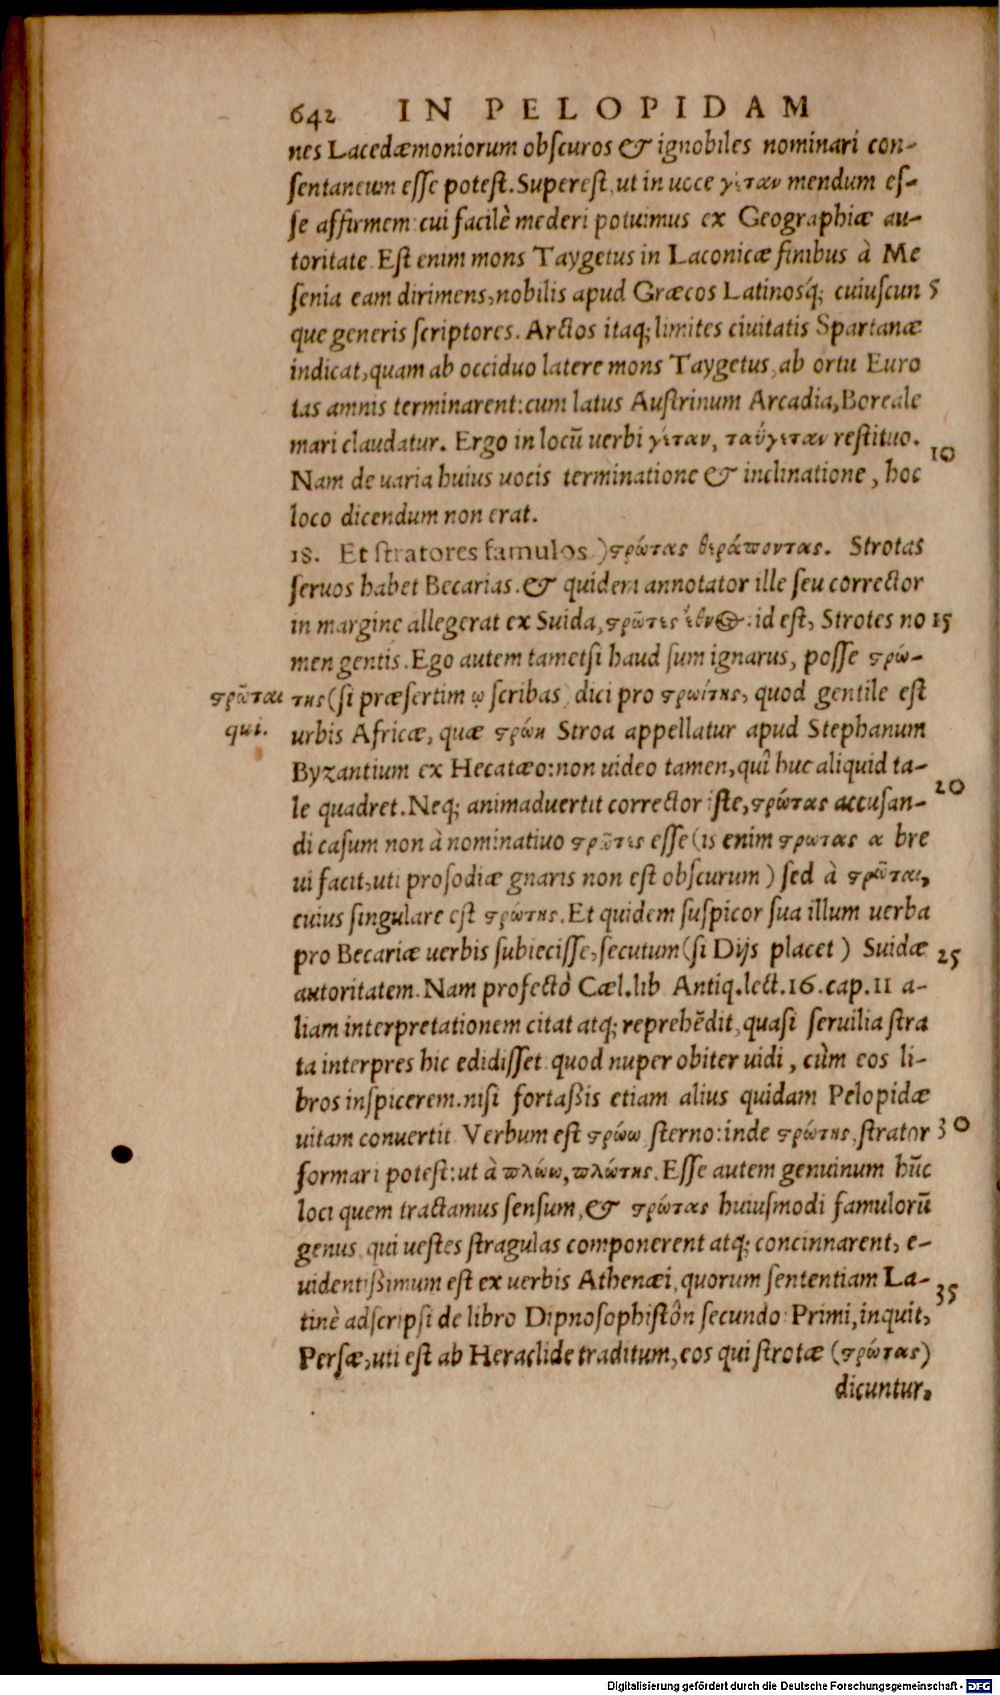 642 IN PELOPIDAM
nes Lacedæmoniorum obſcuros & ignobiles nominari con-
ſentaneum eſſe poteſt. Supereſt, ut in uoce γέταν mendum eſ-
ſe affirmem: cui facilè mederi potuimus ex Geographiæ au-
toritate. Eſt enim mons Taygetus in Laconicæ finibus à Me
ſenia eam dirimens, nobilis apud Græcos Latinosq́; cuiuſcun 5
que generis ſcriptores. Arctos itaq; limites ciuitatis Spartanæ
indicat, quam ab occiduo latere mons Taygetus, ab ortu Euro
tas amnis terminarent: cum latus Auſtrinum Arcadia, Boreale
mari claudatur. Ergo in locū uerbi γέταν, ταΰγεταν reſtituo.
Nam de uaria huius uocis terminatione & inclinatione, hoc 10
loco dicendum non erat.
18. Et ſtratores famulos) ςρώτας θεράποντας. Strotas
ſeruos habet Becarias. & quidem annotator ille ſeu corrector
in margine allegerat ex Suida, ςρῶτες ἔθνος: id eſt, Strotes no 15
men gentis. Ego autem tametſi haud ſum ignarus, poſſe ςρώ-
ςρῶται της (ſi præſertim ῳ ſcribas) dici pro ςρωίτης, quod gentile eſt
qui. urbis Africæ, quæ ςρώη Stroa appellatur apud Stephanum
Byzantium ex Hecatæo: non uideo tamen, quî huc aliquid ta-
le quadret. Neq; animaduertit corrector iſte, ςρώτας accuſan- 20
di caſum non à nominatiuo ςρῶτες eſſe (is enim ςρωτας α bre
ui facit, uti proſodiæ gnaris non eſt obſcurum) ſed à ςρῶται,
cuius ſingulare eſt ςρώτης. Et quidem ſuſpicor ſua illum uerba
pro Becariæ uerbis ſubieciſſe, ſecutum (ſi Dijs placet) Suidæ 25
autoritatem. Nam profectò Cæl. lib. Antiq. lect. 16. cap. 11 a-
liam interpretationem citat atq; reprehēdit, quaſi ſeruilia ſtra
ta interpres hic edidiſſet. quod nuper obiter uidi, cùm eos li-
bros inſpicerem. niſi fortaßis etiam alius quidam Pelopidæ
uitam conuertit. Verbum eſt ςρώω ſterno: inde ςρώτης, ſtrator 30
formari poteſt: ut à πλώω, πλώτης. Eſſe autem genuinum hūc
loci quem tractamus ſenſum, & ςρώτας huiuſmodi famulorū
genus, qui ueſtes ſtragulas componerent atq; concinnarent, e-
uidentißimum eſt ex uerbis Athenæi, quorum ſententiam La-
tinè adſcripſi de libro Dipnoſophiſtôn ſecundo: Primi, inquit, 35
Perſæ, uti eſt ab Heraclide traditum, eos qui ſtrotæ (ςρώτας)
dicuntur,
Digitalisierung gefördert durch die Deutsche Forschungsgemeinschaft - DFG